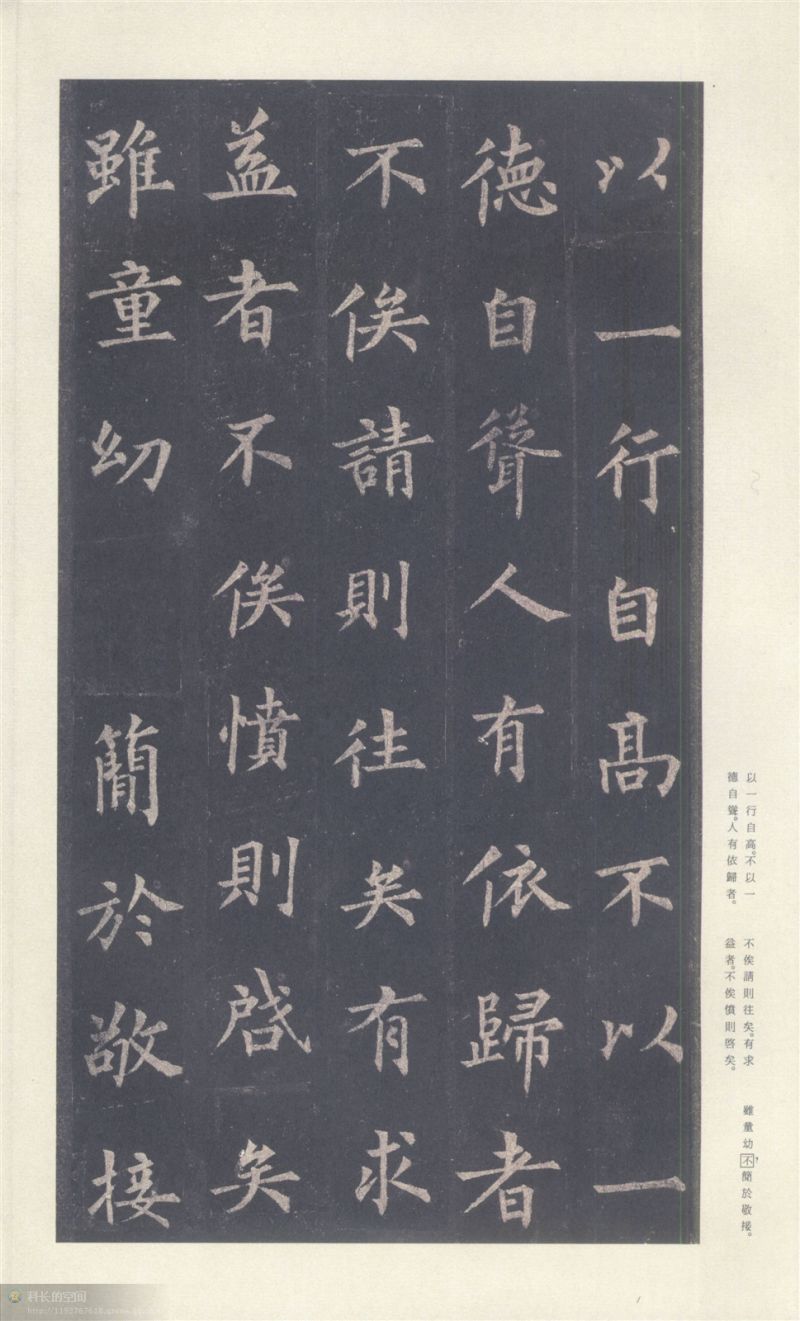 以一行自高不以一
德自聳人有依歸者
不俟請則往矣有求
益者不俟憤則啓矣
雖童幼簡於敬接
以一行自高。不以一
德自聳。人有依歸者。
不俟請則往矣。有求
益者。不俟憤則啓矣。
雖童幼不，簡於敬接。
科长的空间